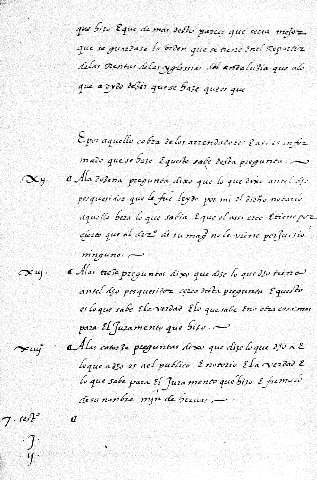 que hizo E que de mas desto parece que seria mejor
que se guardase la orden que se tiene En el Repartir
de las Rentas de las yglesias del andaluzia que a lo
que a oydo dezir que se haze que es que
E por aquello cobra de los arrendadores E asi es infor
mado que se haze E questo sabe desta pregunta
xij A la dozena pregunta dixo que lo que dixo antel dho
pesquesidor que le fue leydo por mi el dicho notario
aquello hera lo que sabia E que el asi cree E tiene por
cierto que al de su magd no le viene perjuizio
ninguno
xiij A las treze preguntas dixo que dize lo que dho tiene
antel dho pesquesidor cerca desta pregunta E questo
es lo que sabe E la verdad E lo que sabe En esta
para El Juramento que hizo
xiiij A las catorze preguntas dixo que dize lo que dho a E
lo que a dho es ael publico E notorio E la verdad E
lo que sabe para El Juramento que hizo E firmolo
de su nombre myn de
7. testo
J
ij